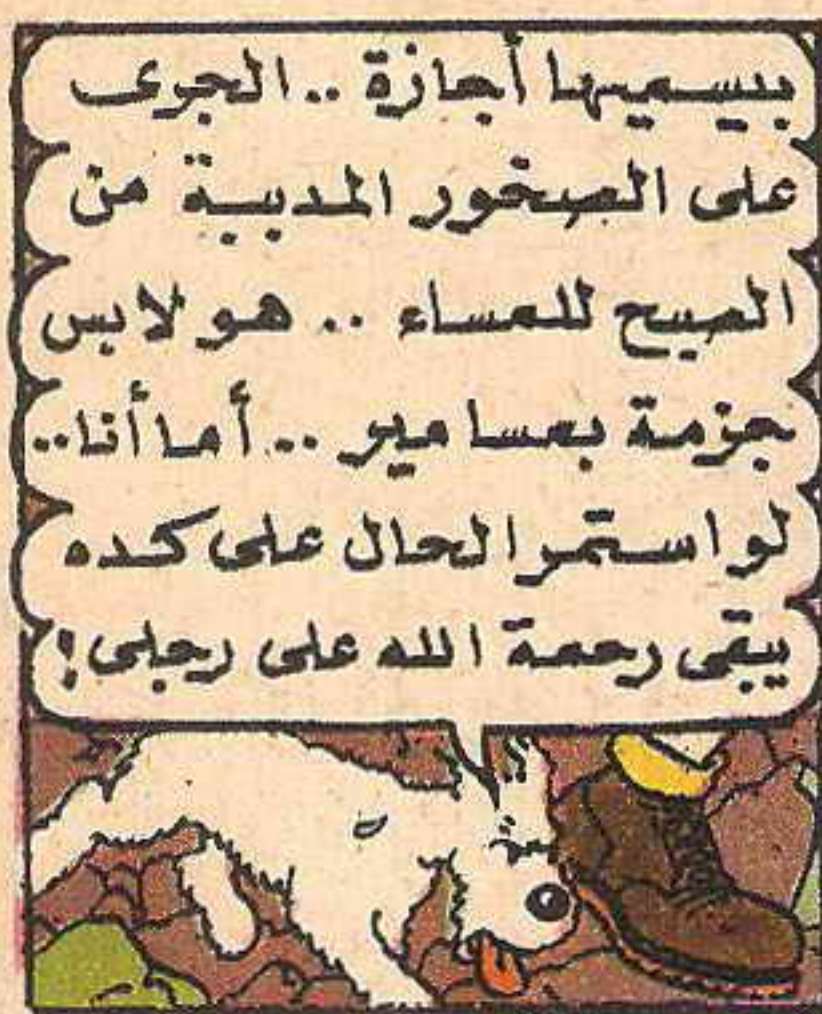 بيسميها أجازة .. الجرى
على الصخور المدببة من
الصبح للمساء .. هو لابس
جزمة بمسامير .. أما أنا ..
لو استمر الحال على كده
يبقى رحمة الله على رجلى !